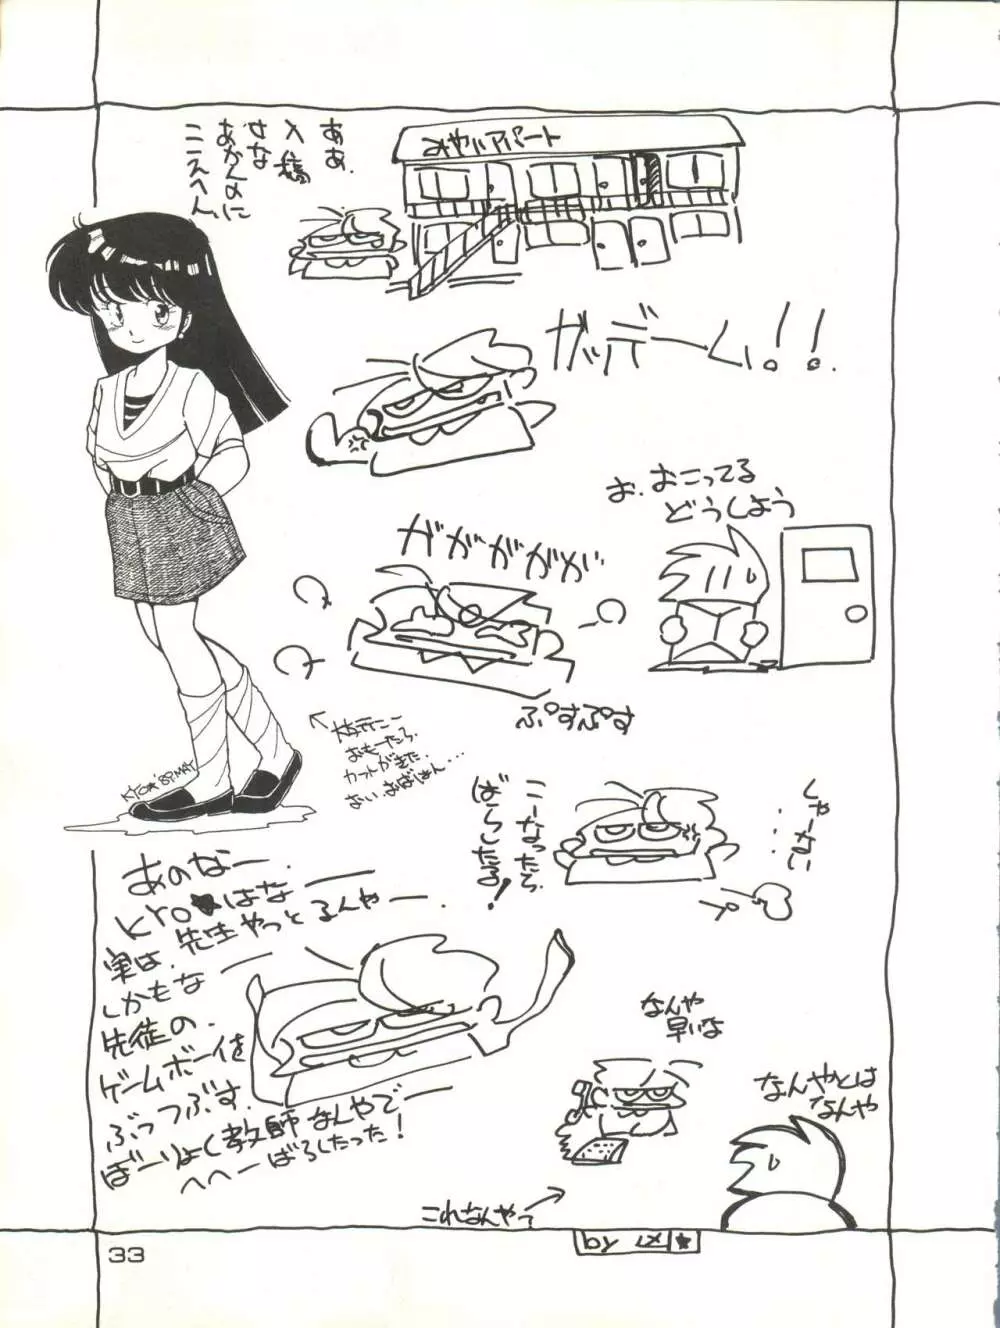 ああ、
入稿
すな
あかんのに
こえへん
みやいアパート
ガッデーム!!
お、おこってる
どうしよう
ガガガガガ
ぷすぷす
おもーたら、
カットがきた
KYO★'89.MAY
こーなったら、
ばらしたる!
しゃーない
・・・
あのなー、
KYO★はな
実は、先生やっとるんやー、
しかもな
先徒の、
ゲームボーイを
ぶっつぶす、
ぼーりょく教師なんやでー
へへーばらしたった!
なんや
早いな
なんやとは
なんや
これなんやって
33